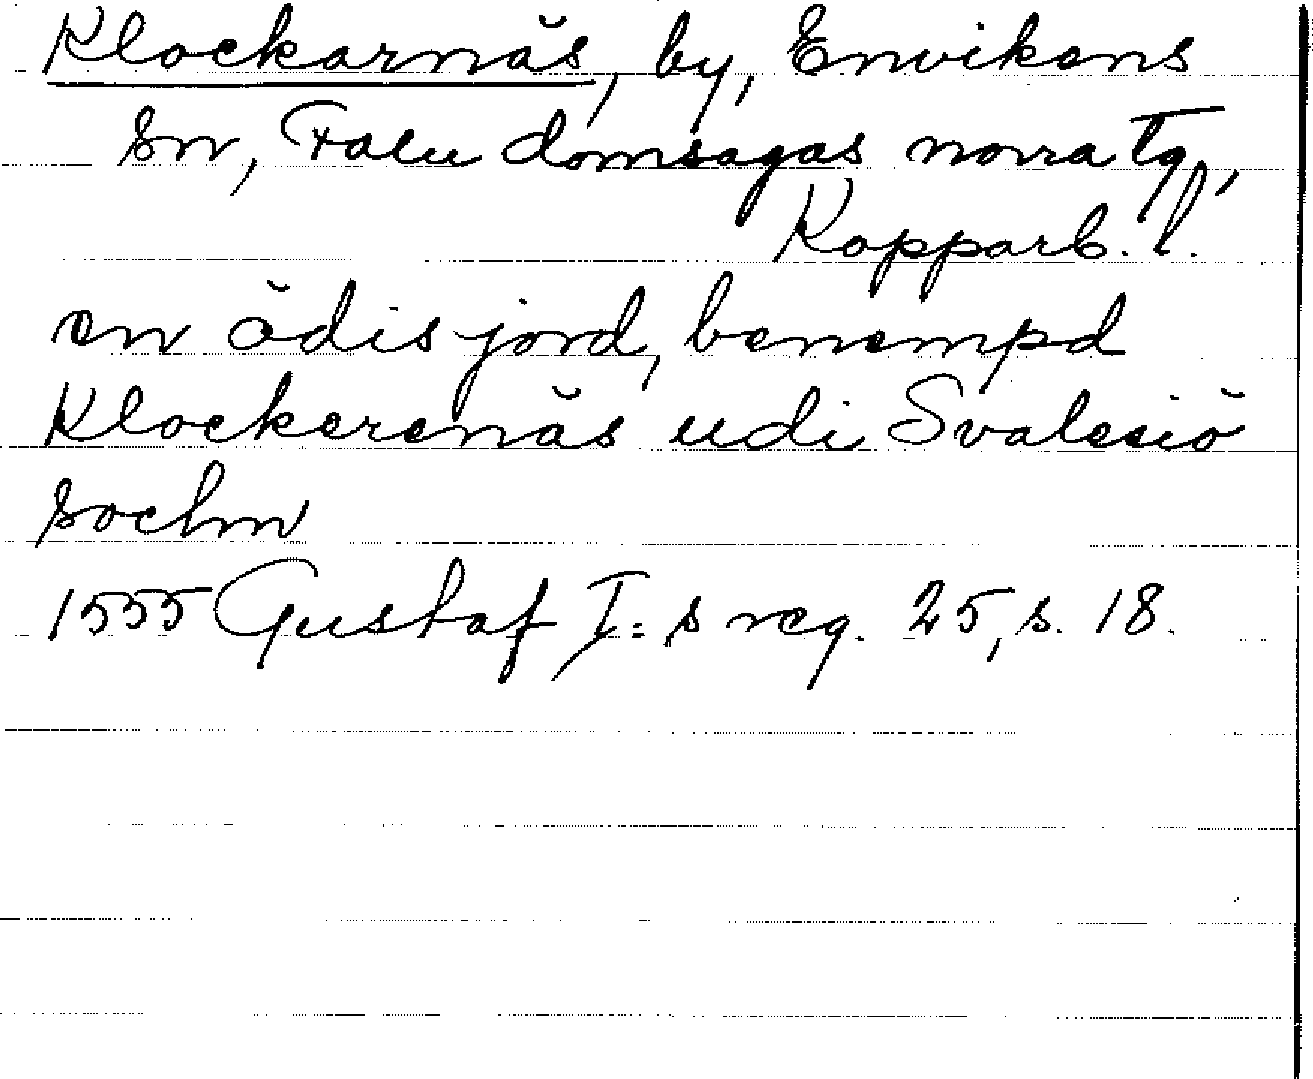 Klockarnäs, by, Envikens
sn, Falu domsagas norra tg,
Kopparb. l.
en ödis jord, benempd
Klockerenäs udi Svalesiö
sochn
1555 Gustaf I:s reg. 25, s. 18.